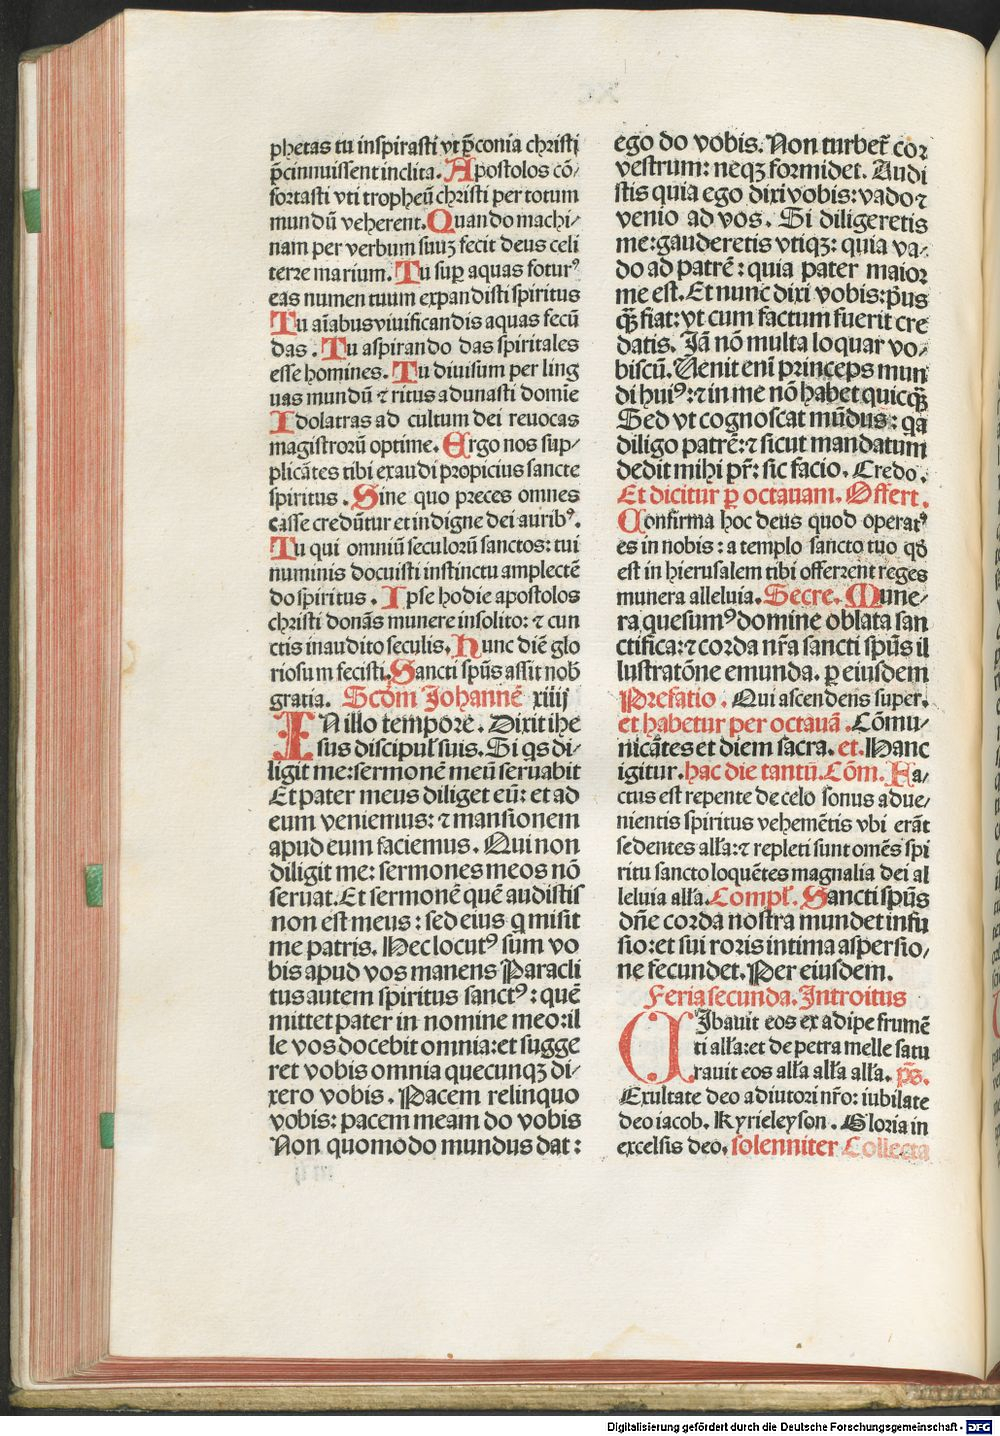 phetas tu inspirasti vt p̄conia christi
p̄cinnuissent inclita. Apostolos cō/
fortasti vti tropheū christi per totum
mundū veherent. Quando machi/
nam per verbum suuꝫ fecit deus celi
terre marium. Tu suꝑ aquas foturꝰ
eas numen tuum expandisti spiritus
Tu aīabus viuificandis aquas fecū
das. Tu aspirando das spiritales
esse homines. Tu diuisum per ling
uas mundū ⁊ ritus adunasti domīe
Idolatras ad cultum dei reuocas
magistrorū optime. Ergo nos sup/
plicātes tibi exaudi propicius sancte
spiritus. Sine quo preces omnes
casse credūtur et indigne dei auribꝰ.
Tu qui omniū seculorū sanctos: tui
numinis docuisti instinctu amplectē
do spiritus. Ipse hodie apostolos
christi donās munere insolito: ⁊ cun
ctis inaudito seculis. Hunc diē glo
riosum fecisti. Sancti spūs assit nob̄
gratia. Scd̄m Johannē xiiij
IN illo tempore. Dixit ihe
sus discipul̄ suis. Si q̄s di/
ligit me: sermonē meū seruabit
Et pater meus diliget eū: et ad
eum veniemus: ⁊ mansionem
apud eum faciemus. Qui non
diligit me: sermones meos nō
seruat. Et sermonē quē audistis
non est meus: sed eius q̄ misit
me patris. Hec locutꝰ sum vo
bis apud vos manens Paracli
tus autem spiritus sanctꝰ: quē
mittet pater in nomine meo: il
le vos docebit omnia: et sugge
ret vobis omnia quecunqꝫ di/
xero vobis. Pacem relinquo
vobis: pacem meam do vobis
Non quomodo mundus dat:
ego do vobis. Non turbet̄ cor
vestrum: neqꝫ formidet. Audi
stis quia ego dixi vobis: vado ⁊
venio ad vos. Si diligeretis
me: gauderetis vtiqꝫ: quia va/
do ad patrē: quia pater maior
me est. Et nunc dixi vobis: p̄us
q̄ꝫ fiat: vt cum factum fuerit cre
datis. Jā nō multa loquar vo/
biscū. Uenit enī princeps mun
di huiꝰ: ⁊ in me nō habet quicq̄ꝫ
Sed vt cognoscat mūdus: qa
diligo patrē: ⁊ sicut mandatum
dedit mihi pr̄: sic facio. Credo.
Et dicitur ꝑ octauam. Offert.
Confirma hoc deus quod operatꝰ
es in nobis: a templo sancto tuo qd̄
est in hierusalem tibi offerrent reges
munera alleluia. Secre. Mune/
ra quesumꝰ domine oblata san
ctifica: ⁊ corda nr̄a sancti spūs il
lustratōne emunda. ꝑ eiusdem
Prefatio. Qui ascendens super.
et habetur per octauā. Cōmu/
nicātes et diem sacra. et. Hanc
igitur. hac die tantū. Cōm. Fa/
ctus est repente de celo sonus adue/
nientis spiritus vehemētis vbi erāt
sedentes alła: ⁊ repleti sunt omēs spi
ritu sancto loquētes magnalia dei al
leluia alła. Compl̄. Sancti spūs
dn̄e corda nostra mundet infu
sio: et sui roris intima aspersio/
ne fecundet. Per eiusdem.
Feria secunda. Introitus
CIbauit eos ex adipe frumē
ti alła: et de petra melle satu
rauit eos alła alła alła. ps̄.
Exultate deo adiutori nr̄o: iubilate
deo iacob. Kyrieleyson. Gloria in
excelsis deo. solenniter Collecta
Digitalisierung gefördert durch die Deutsche Forschungsgemeinschaft - DFG